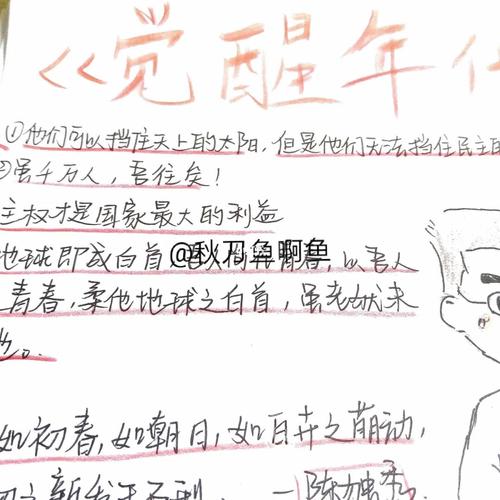 《觉醒年代
①他们可以挡住天上的太阳,但是他们无法挡住民主的
②虽千万人,吾往矣!
主权才是国家最大的利益
地球即成白首,吾人尚在青春,以吾人
青春,柔化地球之白首,虽老犹未
也。
@秋刀鱼啊鱼
如初春,如朝日,如百卉之萌动,
一陈独秀